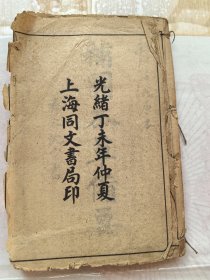 光緒丁未年仲夏
上海同文書局印